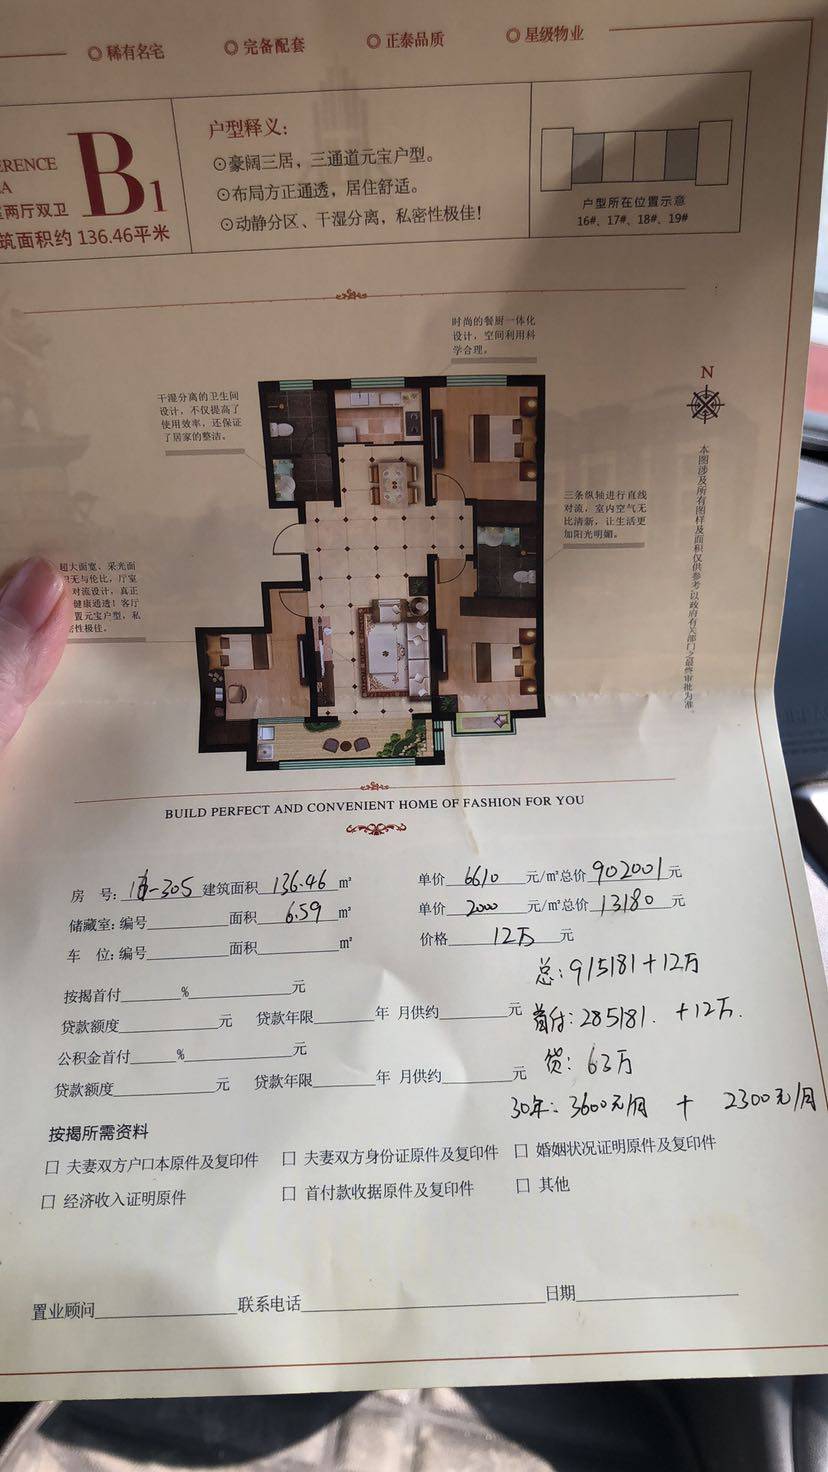 ◎稀有名宅 ◎完备配套 ◎正泰品质 ◎星级物业
ERENCE
A
两厅双卫
B1
筑面积约 136.46平米
户型释义:
⊙豪阔三居，三通道元宝户型。
⊙布局方正通透，居住舒适。
⊙动静分区、干湿分离，私密性极佳!
户型所在位置示意
16#、17#、18#、19#
时尚的餐厨一体化
设计，空间利用科
学合理。
干湿分离的卫生间
设计，不仅提高了
使用效率，还保证
了居家的整洁。
N
三条纵轴进行直线
对流，室内空气无
比清新，让生活更
加阳光明媚。
本图涉及所有图样及面积仅供参考，以政府有关部门之最终审批为准。
超大面宽、采光面
无与伦比，厅室
对流设计，真正
健康通透！客厅
置元宝户型，私
密性极佳。
BUILD PERFECT AND CONVENIENT HOME OF FASHION FOR YOU
房 号: -305 建筑面积 136.46 m² 单价 6610 元/m²总价 902001 元
储藏室:编号 面积 6.59 m² 单价 2000 元/m²总价 13180 元
车 位:编号 面积 m² 价格 12万 元
总: 915181+12万
按揭首付 % 元
首付: 285181. +12万.
贷款额度 元 贷款年限 年 月供约 元
公积金首付 % 元
贷: 63万
贷款额度 元 贷款年限 年 月供约 元
30年: 3600元/月 + 2300元/月
按揭所需资料
□ 夫妻双方户口本原件及复印件 □ 夫妻双方身份证原件及复印件 □ 婚姻状况证明原件及复印件
□ 经济收入证明原件 □ 首付款收据原件及复印件 □ 其他
置业顾问 联系电话 日期